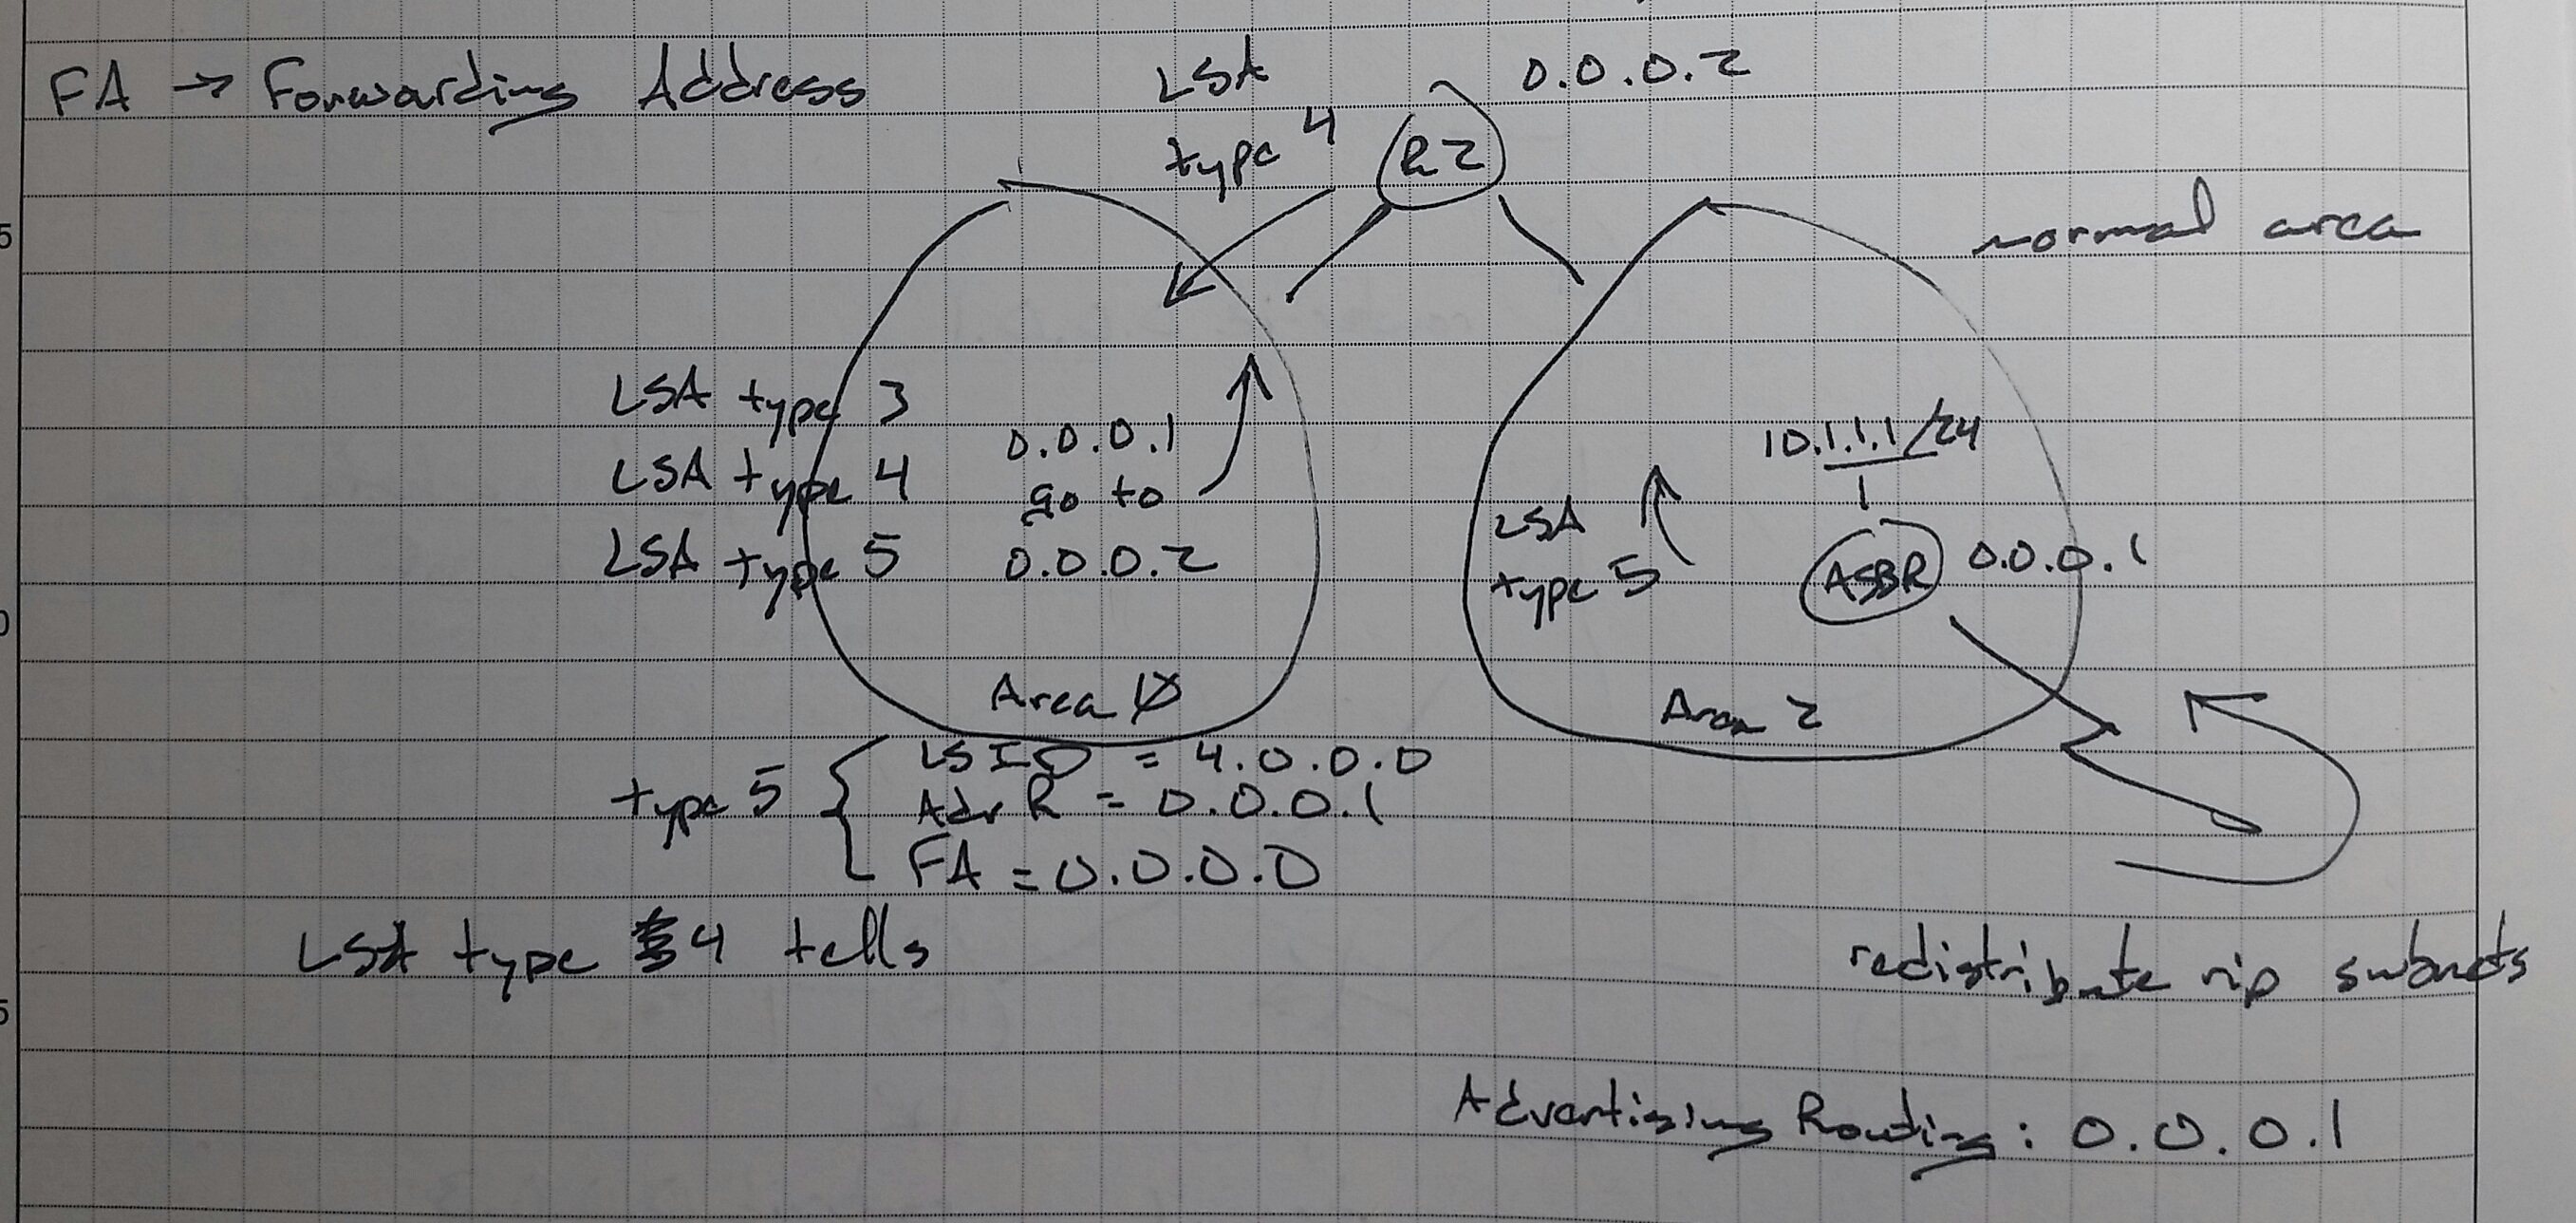 FA → Forwarding Address
LSA
type 4
0.0.0.2
R2
normal area
LSA type 3
LSA type 4
LSA type 5
0.0.0.1
go to
0.0.0.2
Area 0
10.1.1.1/24
1
LSA
type 5
ASBR
0.0.0.1
Area 2
type 5
LSID = 4.0.0.0
Adv R = 0.0.0.1
FA = 0.0.0.0
LSA type 4 tells
redistribute rip subnets
Advertising Routing: 0.0.0.1